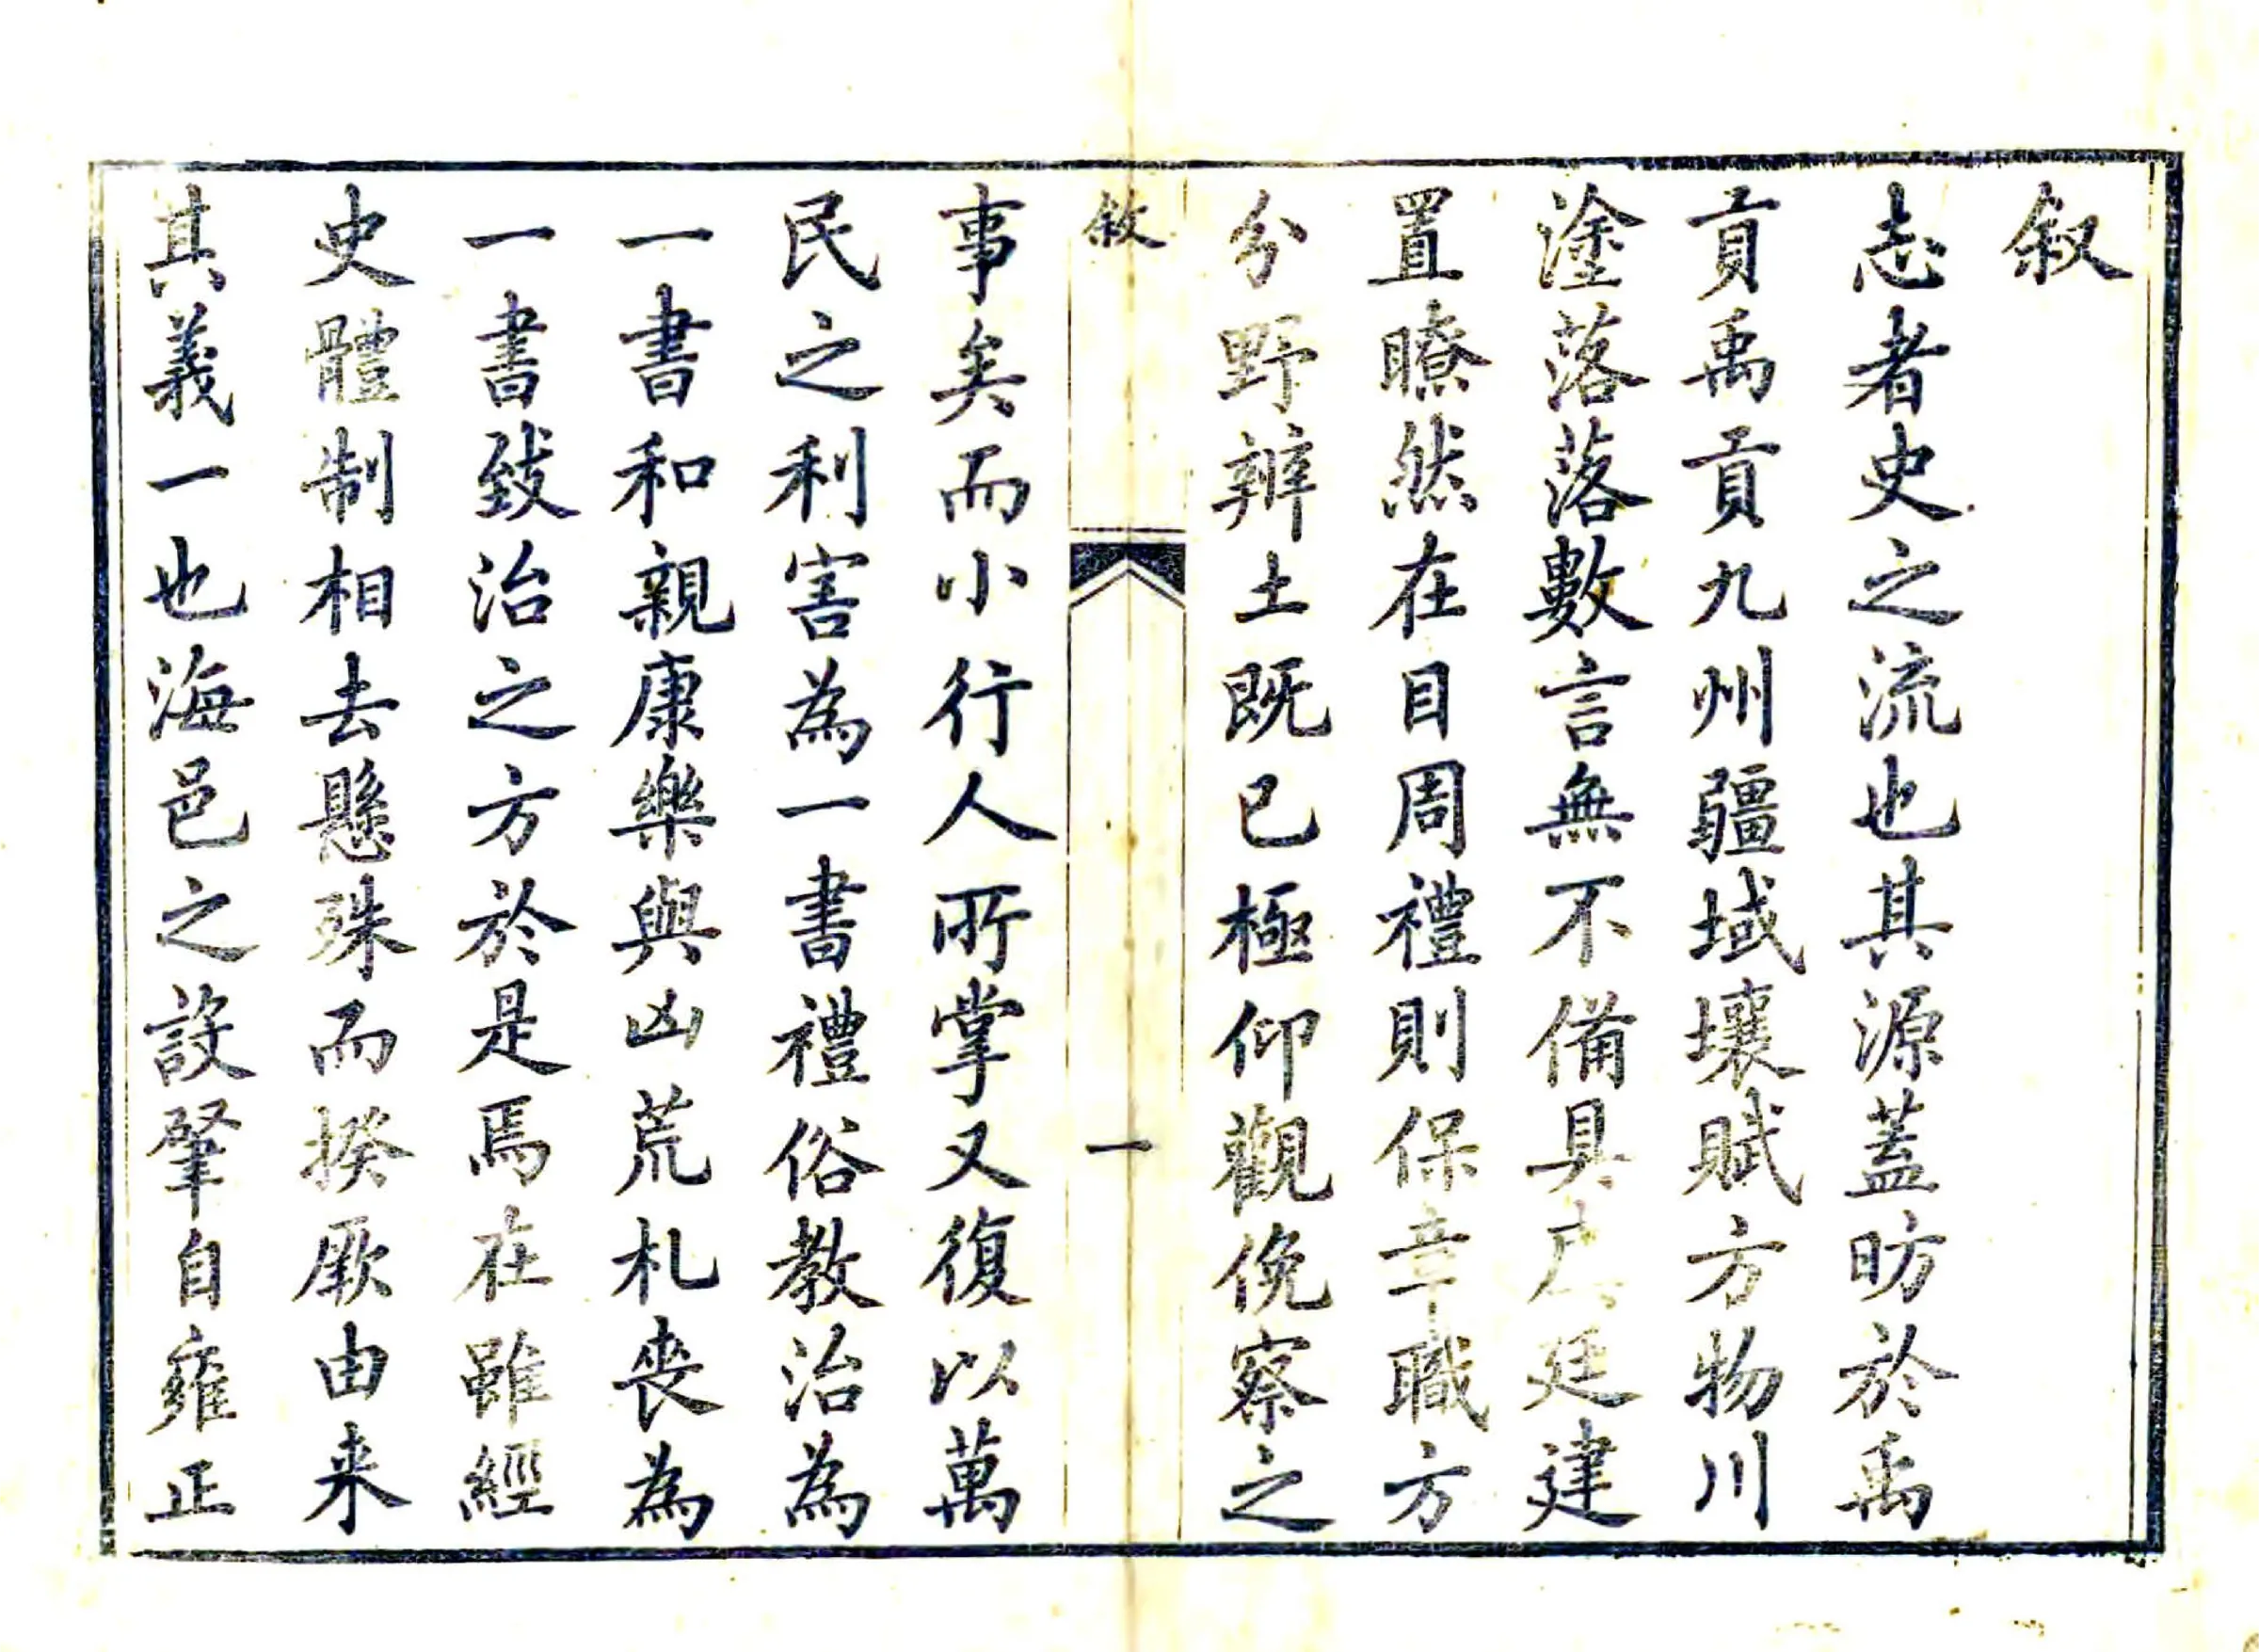 叙
志者史之流也其源蓋昉於禹
貢禹貢九州疆域壤賦方物川
塗落落數言無不備具廷建
置瞭然在目周禮則保章職方
分野辨土既已極仰觀俛察之
敘
一
事矣而小行人所掌又復以萬
民之利害為一書禮俗教治為
一書和親康樂與凶荒札喪為
一書致治之方於是焉在雖經
史體制相去懸殊而揆厥由来
其義一也海邑之設肇自雍正